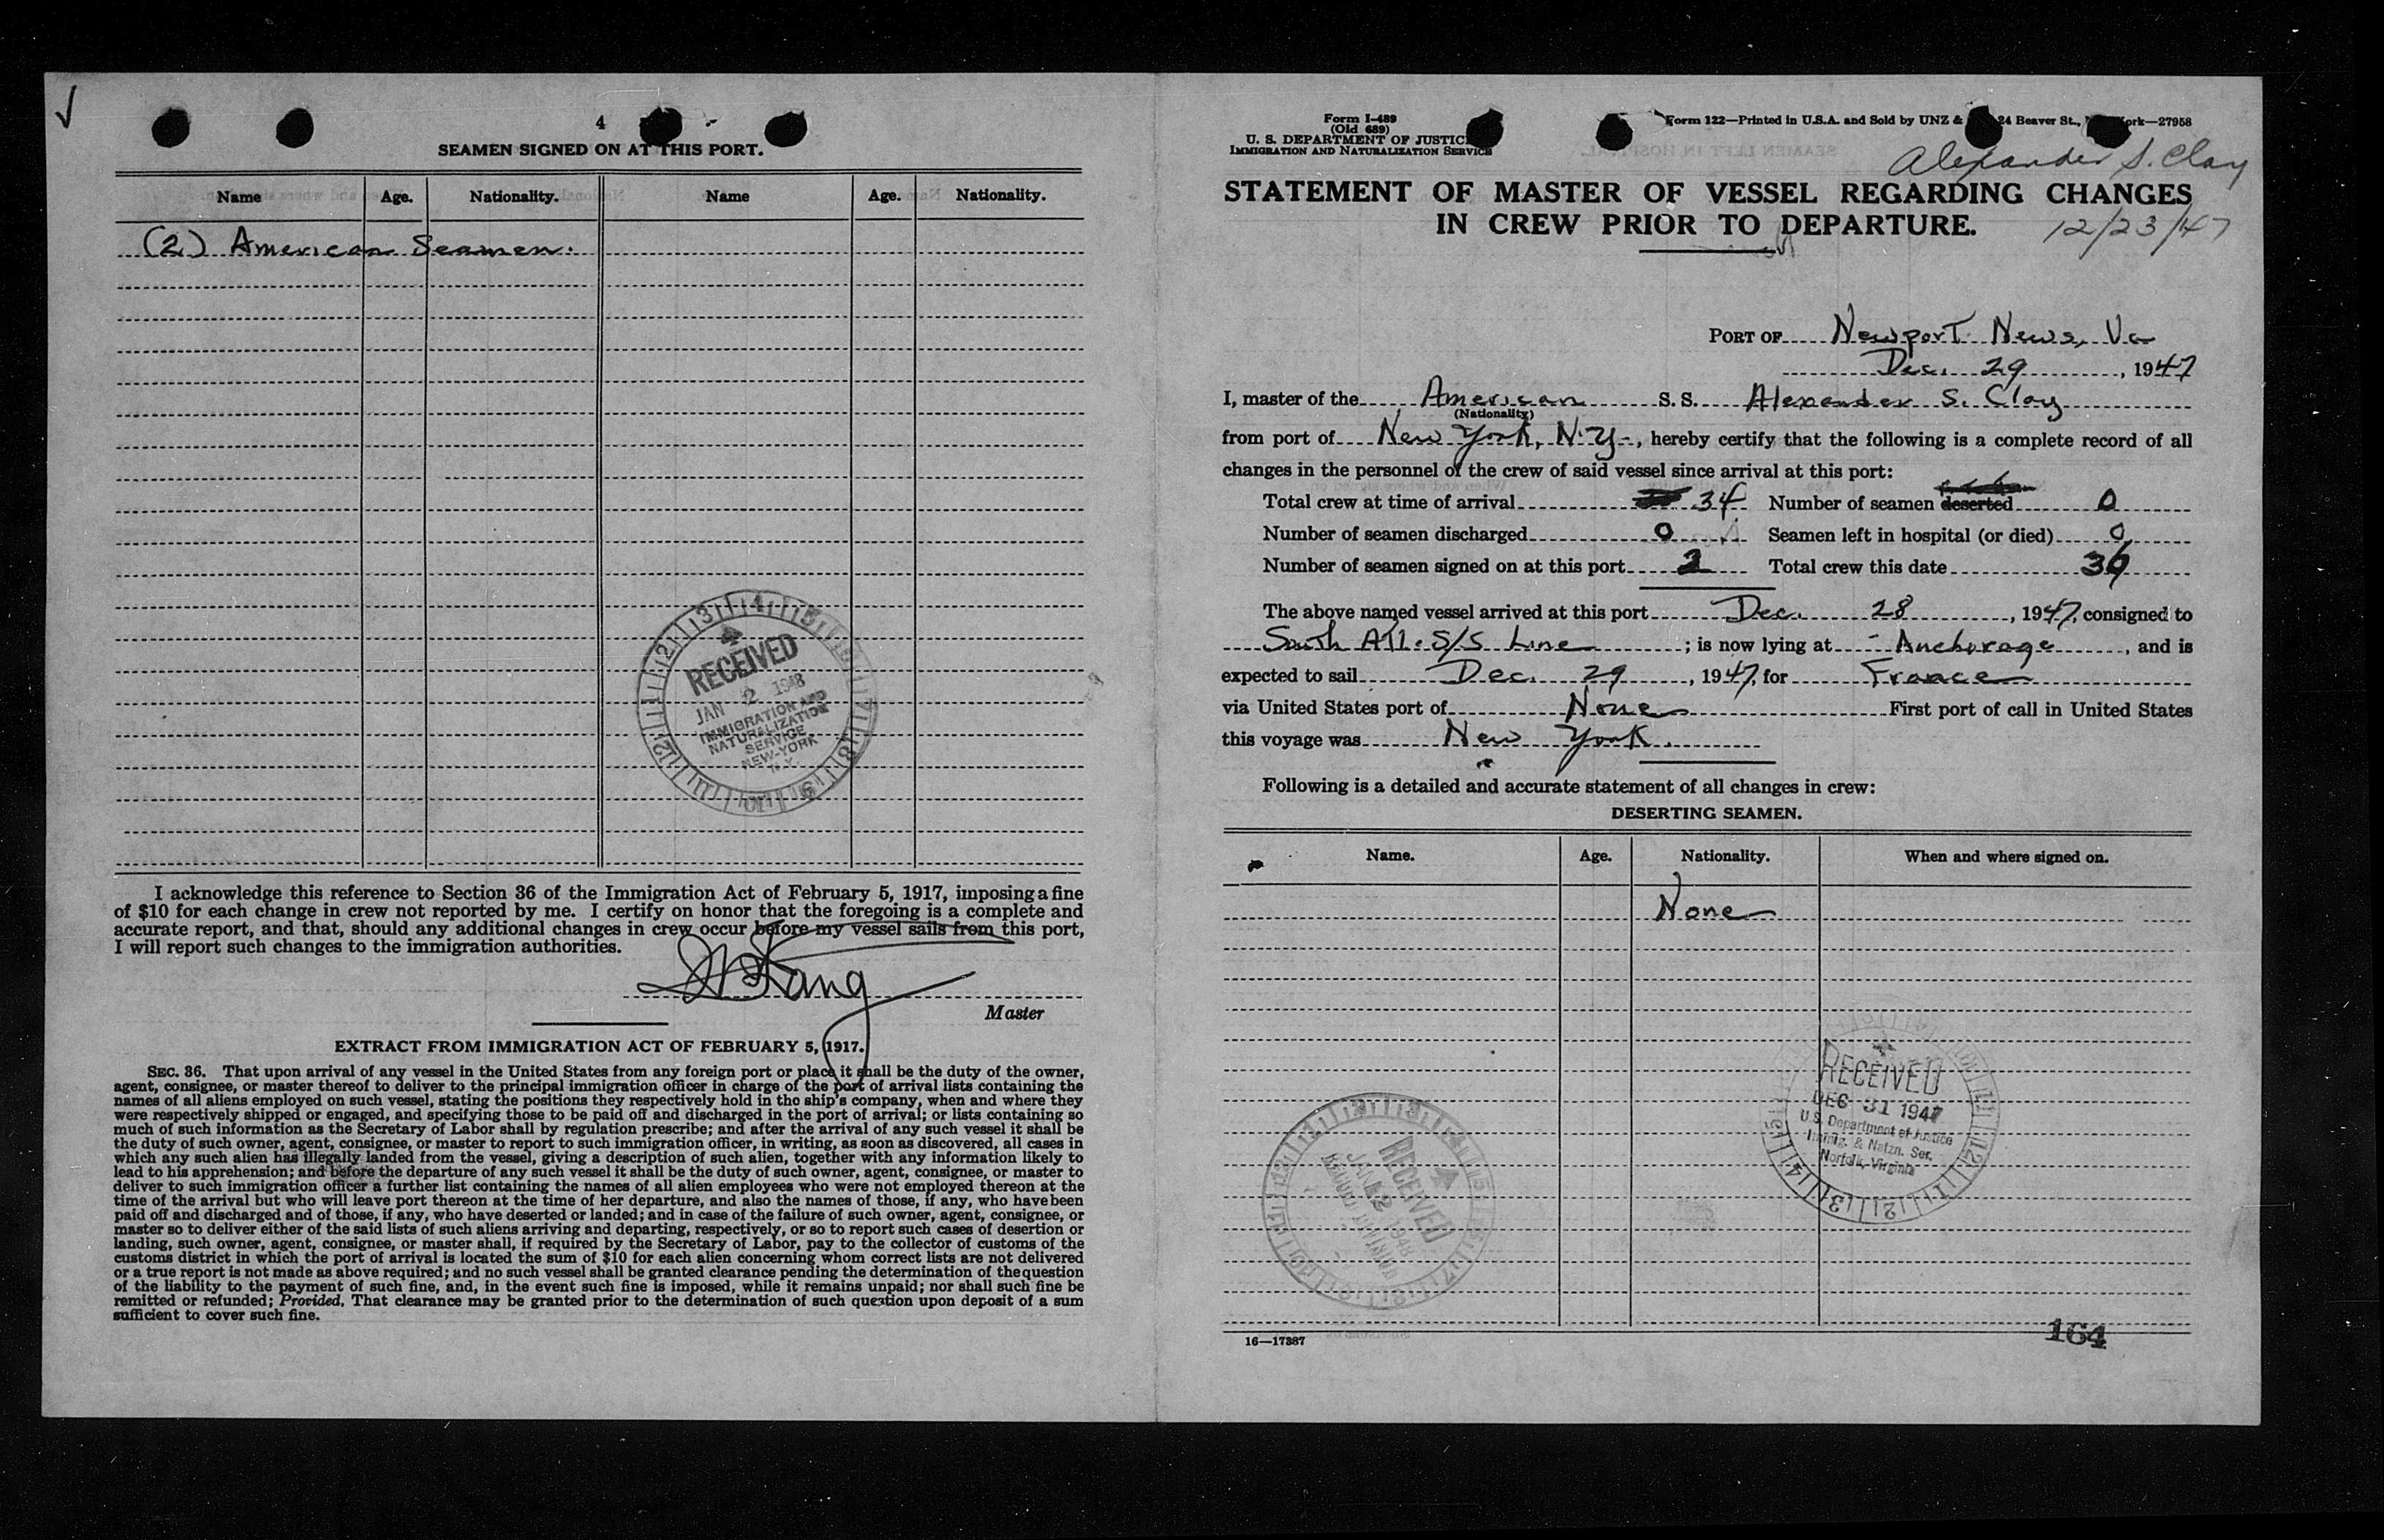 4
SEAMEN SIGNED ON AT THIS PORT.
Name Age. Nationality. Name Age. Nationality.
(2) American Seamen.
RECEIVED
JAN 2 1948
IMMIGRATION AND
NATURALIZATION
SERVICE
NEW-YORK
N.Y.
I acknowledge this reference to Section 36 of the Immigration Act of February 5, 1917, imposing a fine
of $10 for each change in crew not reported by me. I certify on honor that the foregoing is a complete and
accurate report, and that, should any additional changes in crew occur before my vessel sails from this port,
I will report such changes to the immigration authorities.
Master
EXTRACT FROM IMMIGRATION ACT OF FEBRUARY 5, 1917.
SEC. 36. That upon arrival of any vessel in the United States from any foreign port or place it shall be the duty of the owner,
agent, consignee, or master thereof to deliver to the principal immigration officer in charge of the port of arrival lists containing the
names of all aliens employed on such vessel, stating the positions they respectively hold in the ship's company, when and where they
were respectively shipped or engaged, and specifying those to be paid off and discharged in the port of arrival; or lists containing so
much of such information as the Secretary of Labor shall by regulation prescribe; and after the arrival of any such vessel it shall be
the duty of such owner, agent, consignee, or master to report to such immigration officer, in writing, as soon as discovered, all cases in
which any such alien has illegally landed from the vessel, giving a description of such alien, together with any information likely to
lead to his apprehension; and before the departure of any such vessel it shall be the duty of such owner, agent, consignee, or master to
deliver to such immigration officer a further list containing the names of all alien employees who were not employed thereon at the
time of the arrival but who will leave port thereon at the time of her departure, and also the names of those, if any, who have been
paid off and discharged and of those, if any, who have deserted or landed; and in case of the failure of such owner, agent, consignee, or
master so to deliver either of the said lists of such aliens arriving and departing, respectively, or so to report such cases of desertion or
landing, such owner, agent, consignee, or master shall, if required by the Secretary of Labor, pay to the collector of customs of the
customs district in which the port of arrival is located the sum of $10 for each alien concerning whom correct lists are not delivered
or a true report is not made as above required; and no such vessel shall be granted clearance pending the determination of the question
of the liability to the payment of such fine, and, in the event such fine is imposed, while it remains unpaid; nor shall such fine be
remitted or refunded; Provided, That clearance may be granted prior to the determination of such question upon deposit of a sum
sufficient to cover such fine.
Form I-489
(Old 689)
U. S. DEPARTMENT OF JUSTICE
IMMIGRATION AND NATURALIZATION SERVICE
Form 122—Printed in U.S.A. and Sold by UNZ & 24 Beaver St., ork—27958
Alexander S. Clay
STATEMENT OF MASTER OF VESSEL REGARDING CHANGES
IN CREW PRIOR TO DEPARTURE.
12/23/47
PORT OF Newport News, Va
Dec. 29, 1947
I, master of the American S. S. Alexander S. Clay
(Nationality)
from port of New York, N.Y., hereby certify that the following is a complete record of all
changes in the personnel of the crew of said vessel since arrival at this port:
Total crew at time of arrival 34 Number of seamen deserted 0
Number of seamen discharged 0 Seamen left in hospital (or died) 0
Number of seamen signed on at this port 2 Total crew this date 36
The above named vessel arrived at this port Dec. 28, 1947, consigned to
South Atl. S/S Line; is now lying at - Anchorage, and is
expected to sail Dec. 29, 1947, for France
via United States port of None First port of call in United States
this voyage was New York.
Following is a detailed and accurate statement of all changes in crew:
DESERTING SEAMEN.
Name. Age. Nationality. When and where signed on.
None
RECEIVED
DEC 31 1947
U.S. Department of Justice
Immig. & Natzn. Ser.
Norfolk, Virginia
RECEIVED
JAN 2 1948
16—17387
164